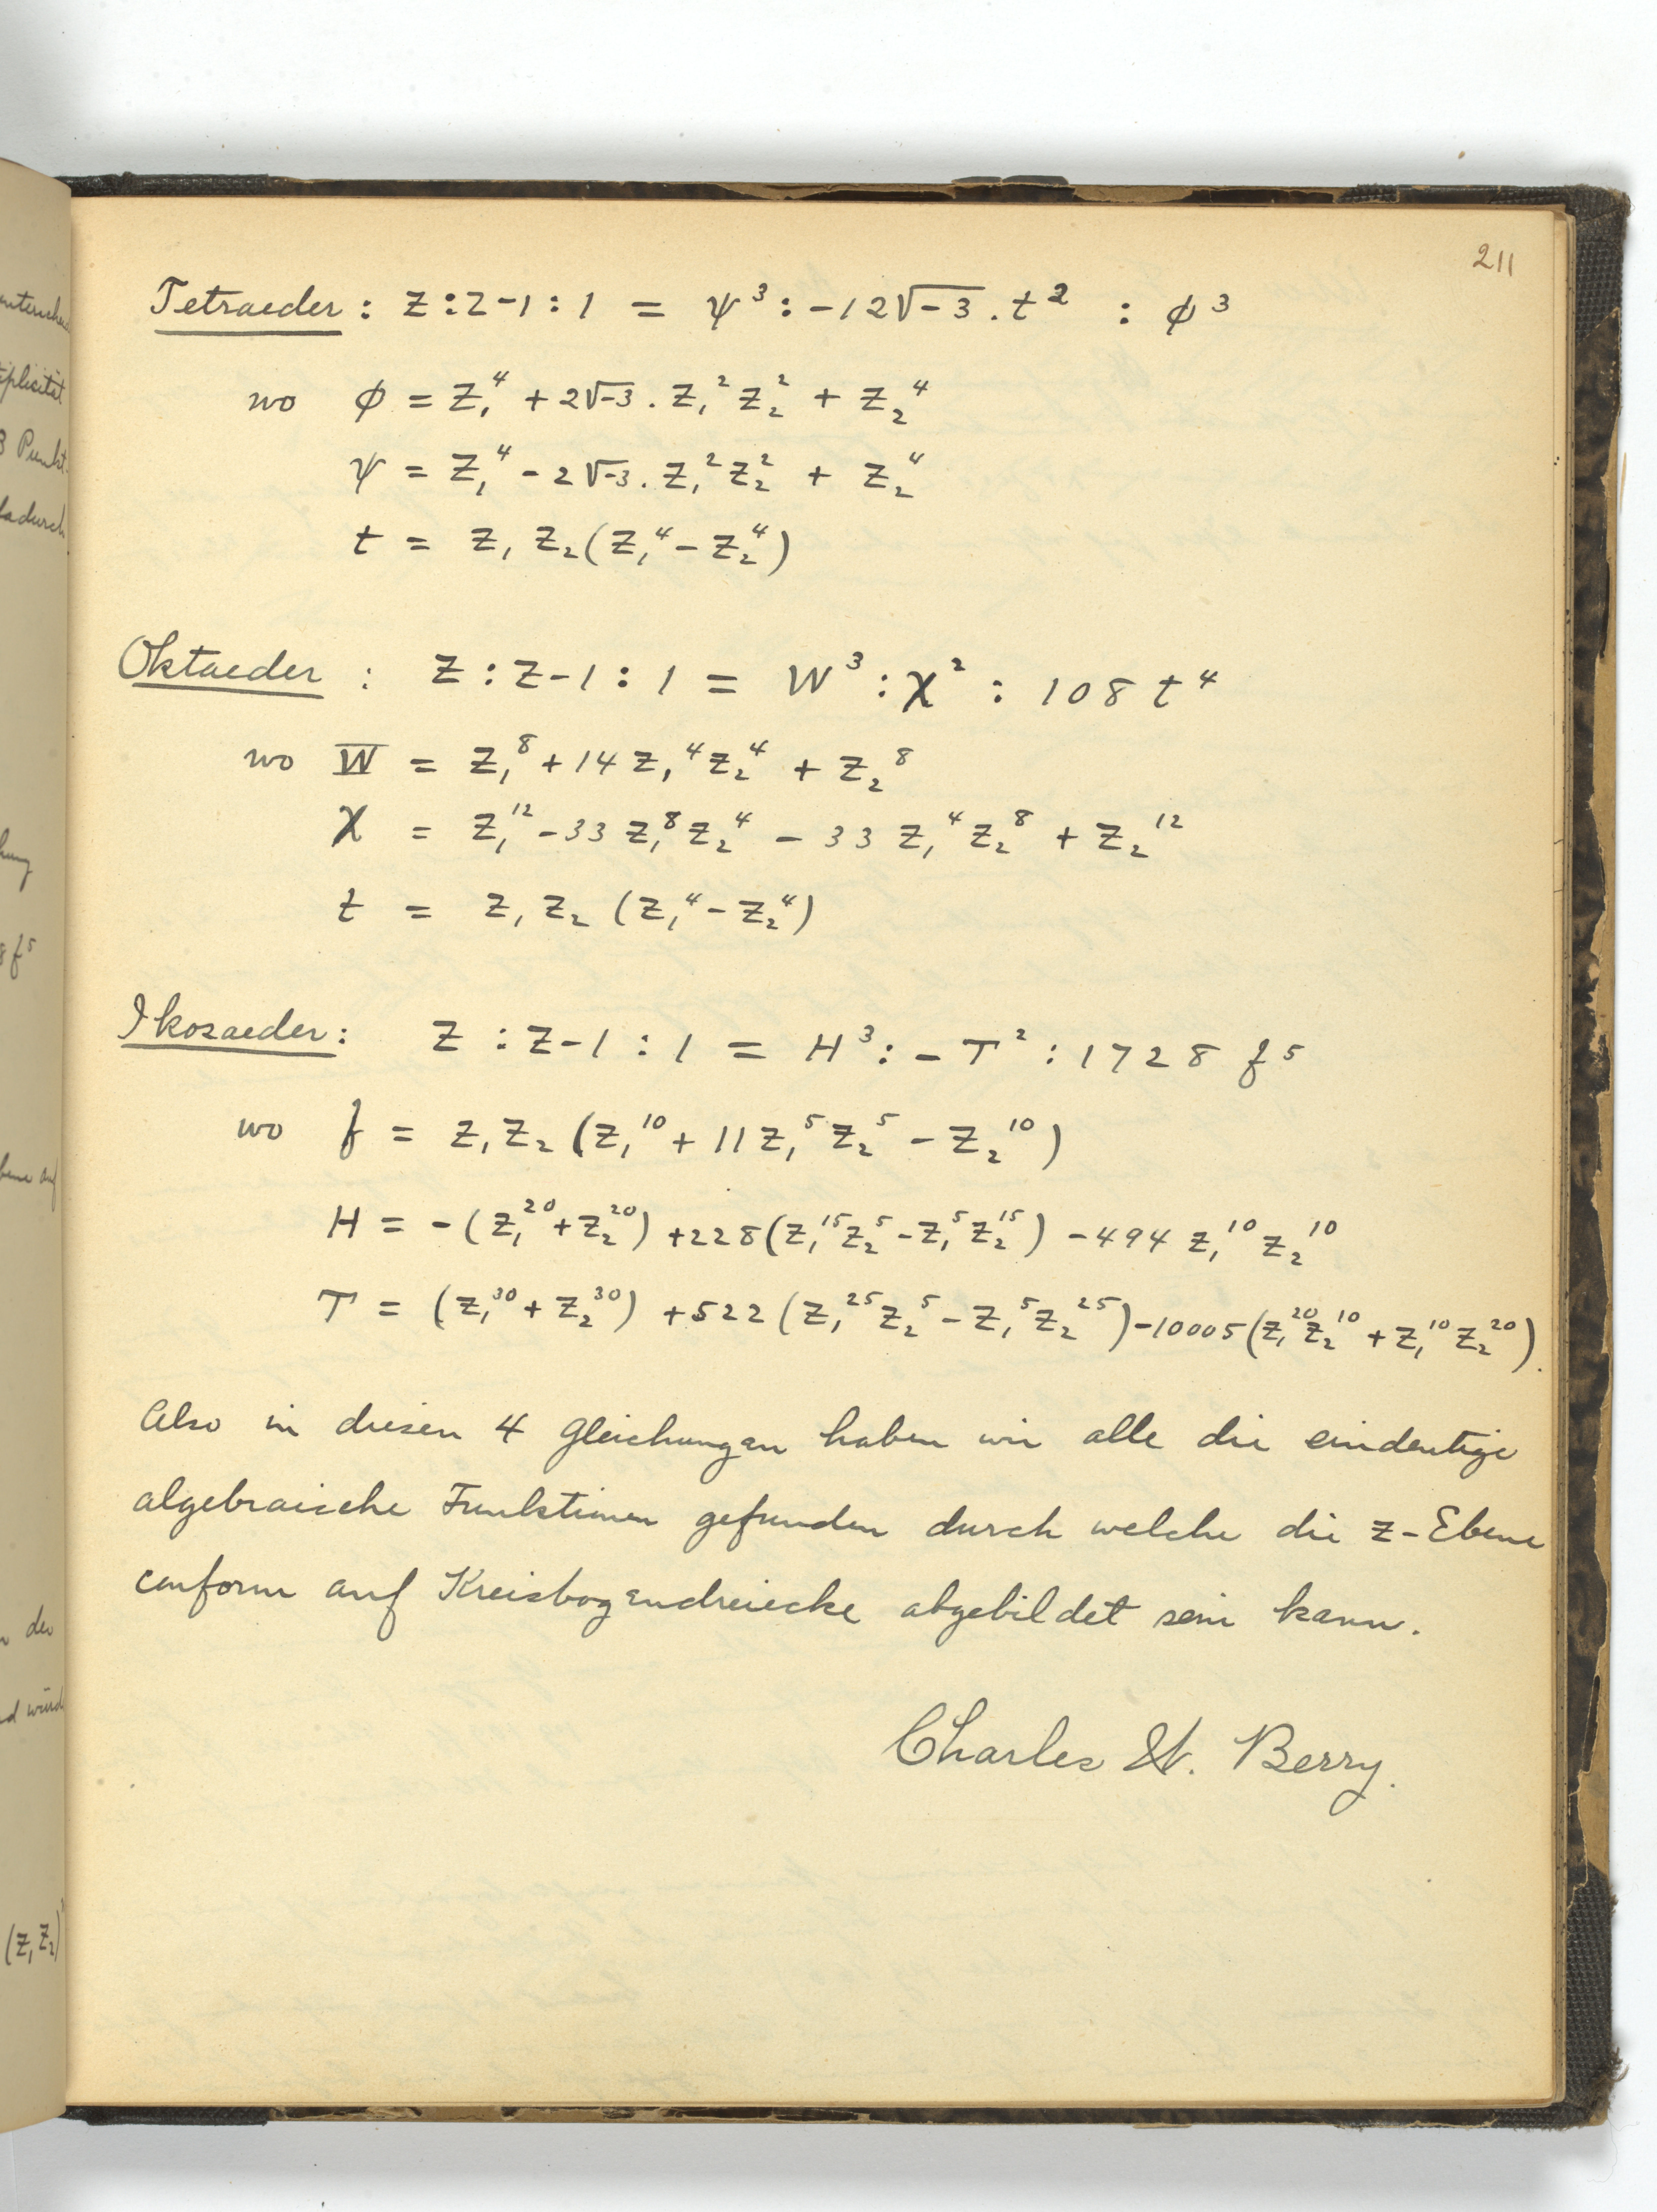 211
Tetraeder : Z : Z-1 : 1 = ψ³ : -12√-3 . t² : φ³
wo φ = z₁⁴ + 2√-3 . z₁² z₂² + z₂⁴
ψ = z₁⁴ - 2√-3 . z₁² z₂² + z₂⁴
t = z₁ z₂ (z₁⁴ - z₂⁴)
Oktaeder : Z : Z-1 : 1 = W³ : χ² : 108 t⁴
wo W = z₁⁸ + 14 z₁⁴ z₂⁴ + z₂⁸
χ = z₁¹² - 33 z₁⁸ z₂⁴ - 33 z₁⁴ z₂⁸ + z₂¹²
t = z₁ z₂ (z₁⁴ - z₂⁴)
Ikosaeder : Z : Z-1 : 1 = H³ : - T² : 1728 f⁵
wo f = z₁ z₂ (z₁¹⁰ + 11 z₁⁵ z₂⁵ - z₂¹⁰)
H = -(z₁²⁰ + z₂²⁰) + 228 (z₁¹⁵ z₂⁵ - z₁⁵ z₂¹⁵) - 494 z₁¹⁰ z₂¹⁰
T = (z₁³⁰ + z₂³⁰) + 522 (z₁²⁵ z₂⁵ - z₁⁵ z₂²⁵) - 10005 (z₁²⁰ z₂¹⁰ + z₁¹⁰ z₂²⁰).
Also in diesen 4 Gleichungen haben wir alle die eindeutige
algebraische Funktionen gefunden durch welche die z-Ebene
conform auf Kreisbogendreiecke abgebildet sein kann.
Charles W. Berry.
3 Punkt
dadurch
f⁵
(z₁ z₂)